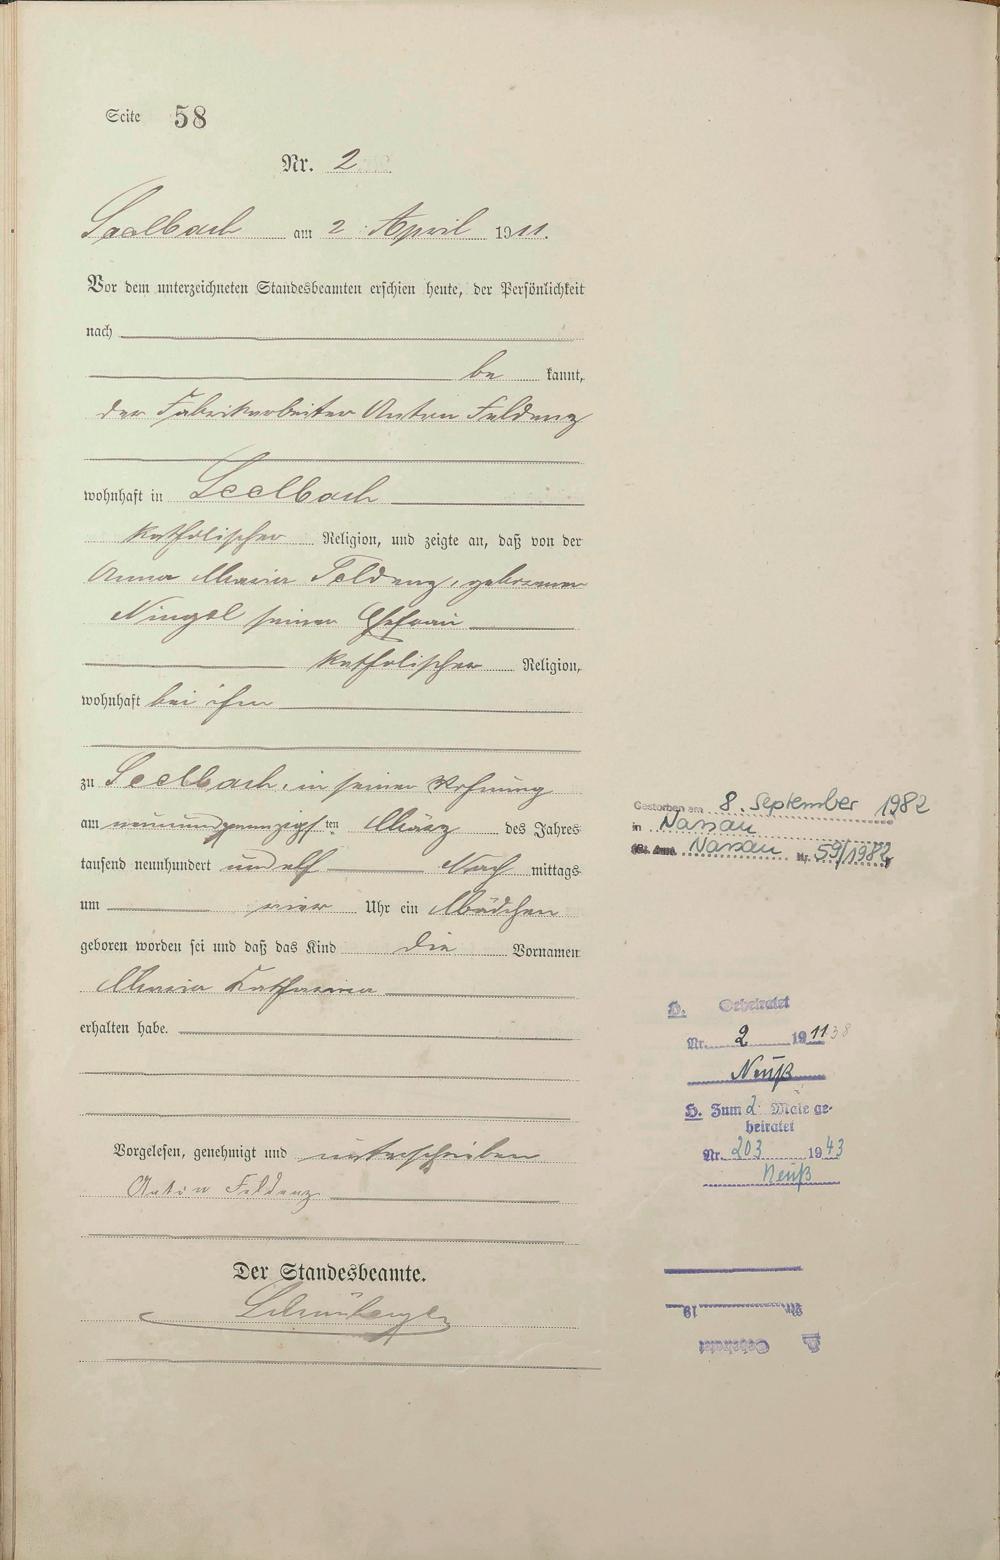 Seite 58
Nr. 2
Seelbach am 2 April 1911.
Vor dem unterzeichneten Standesbeamten erschien heute, der Persönlichkeit
nach
be kannt,
der Fabrikarbeiter Anton Feldenz
wohnhaft in Seelbach
katholischer Religion, und zeigte an, daß von der
Anna Maria Feldenz, geborenen
seiner Ehefrau
katholischer Religion,
wohnhaft bei ihm
zu Seelbach, in seiner Wohnung
am neunundzwanzigsten März des Jahres
tausend neunhundert und elf Nach mittags
um vier Uhr ein Mädchen
geboren worden sei und daß das Kind die Vornamen
Maria Katharina
erhalten habe.
Vorgelesen, genehmigt und unterschrieben
Anton Feldenz
Der Standesbeamte.
Gestorben am 8. September 1982
in Nassau
Nassau Nr. 59/1982
H. Geheiratet
Nr. 2 1911 38
Neuß
H. Zum 2 Male ge-
heiratet
Nr. 203 1943
Neuß
Nr. 19
H. Geheiratet